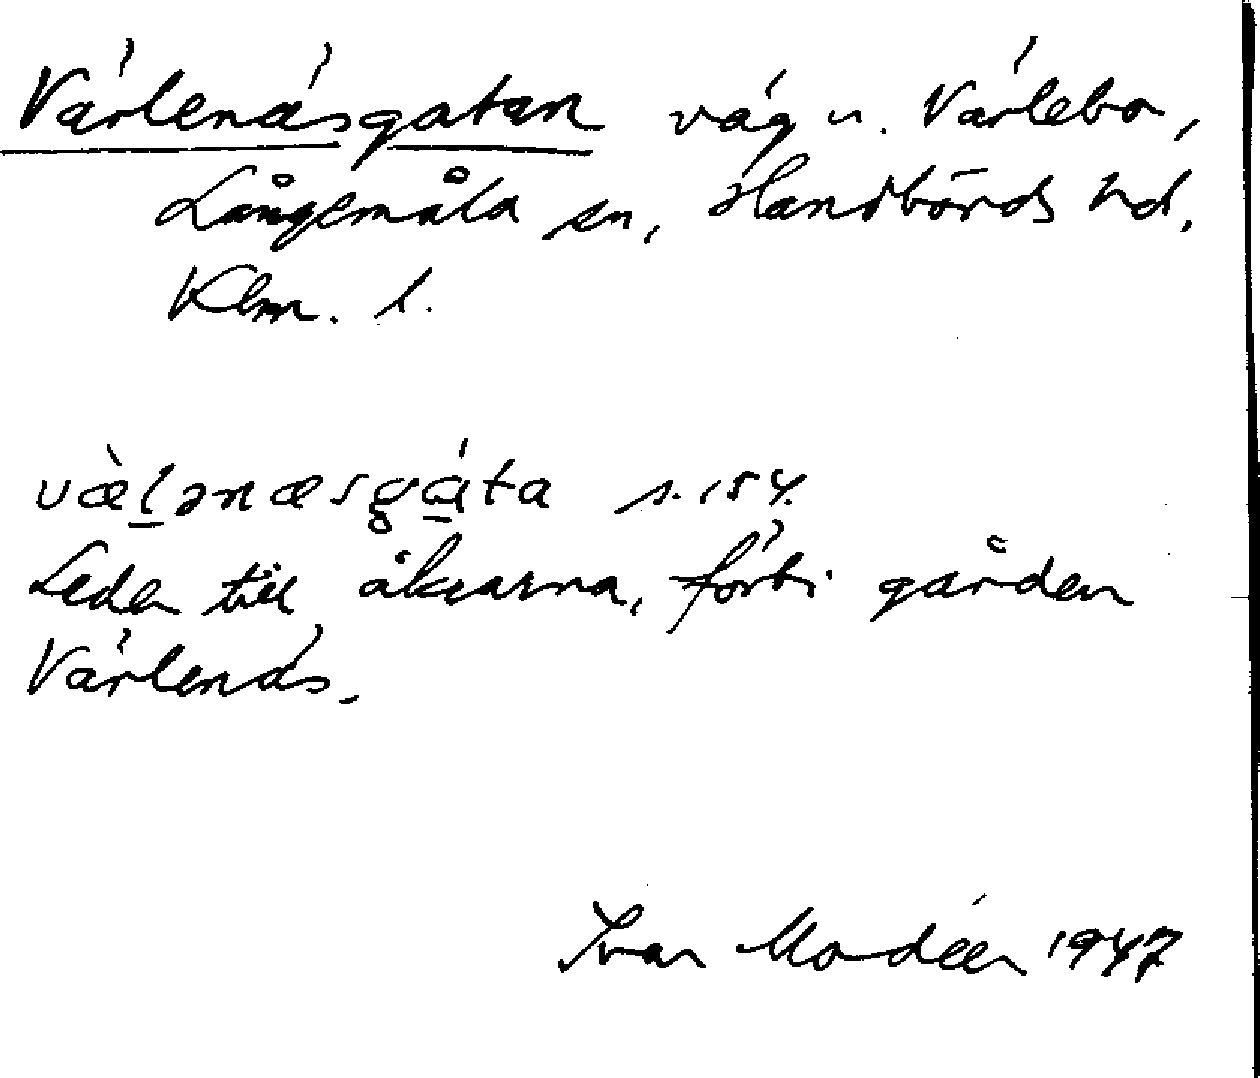 Värlenäsgatan väg u. Värlebo,
Långemåla sn, Handbörds hd.
Klm. l.
væ̀l̠ənæsgá̠ta s. 154.
Leder till åkrarna, förbi gården
Värlenäs.
Ivar Modéer 1947